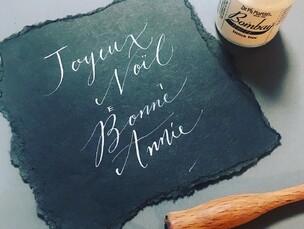 Joyeux
Noël
E
Bonne
Année
Dr. Ph. Martin's
Bombay